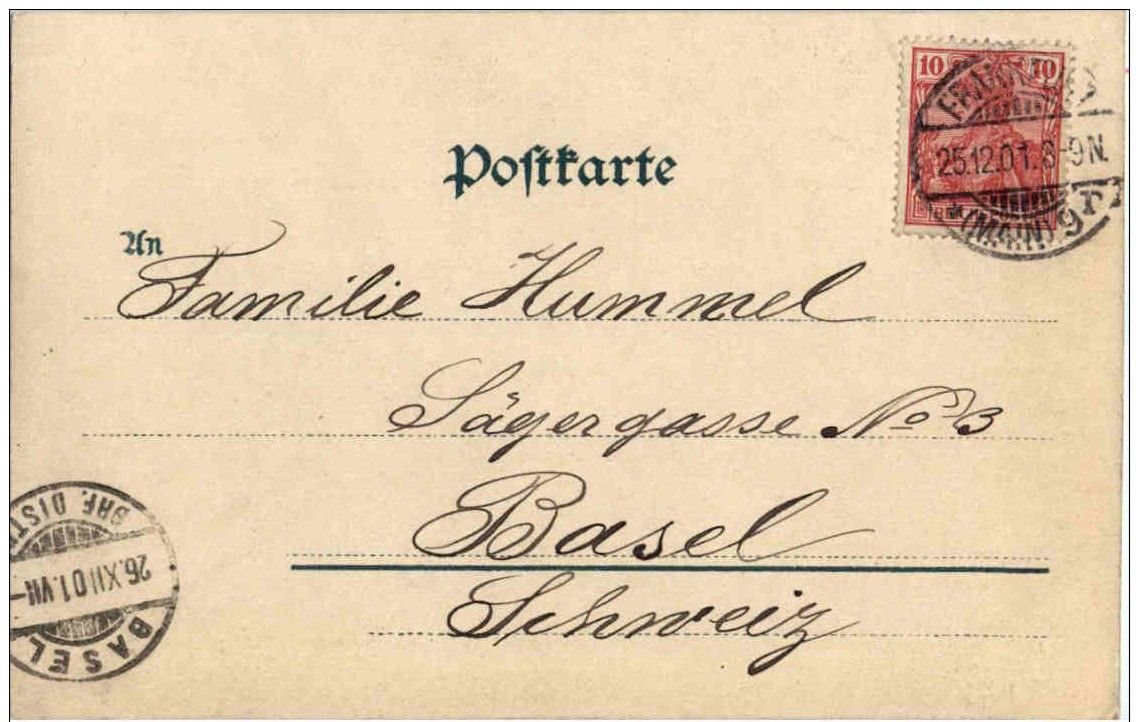 Postkarte
10 10
25.12.01. 8-9N.
(MAIN) 9r
An
Familie Hummel
Sägergasse No 3
Basel
Schweiz
BRF. DIST
26.XII.01.VII-
BASEL